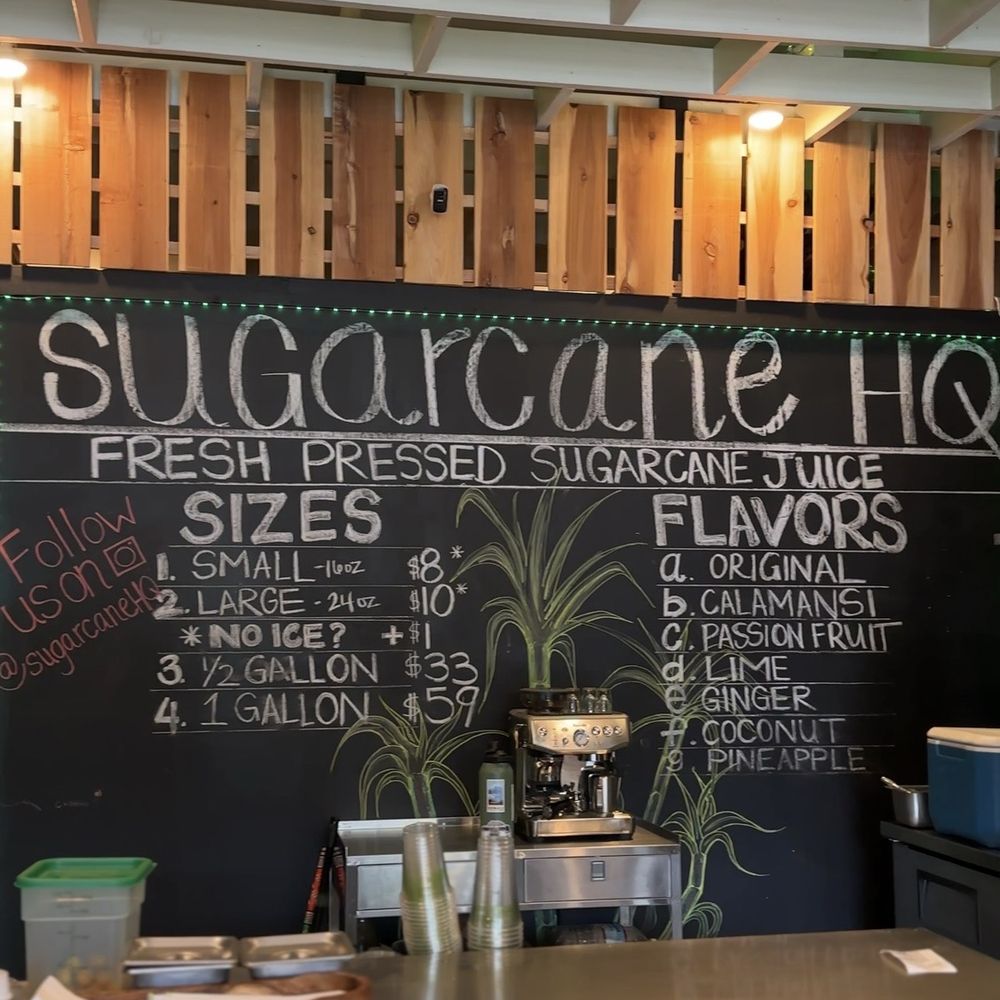 SUGARCANE HQ
FRESH PRESSED SUGARCANE JUICE
Follow
us on
@sugarcaneHQ
SIZES
1. SMALL - 16oz $8*
2. LARGE - 24oz $10*
* NO ICE? +$1
3. 1/2 GALLON $33
4. 1 GALLON $59
FLAVORS
a. ORIGINAL
b. CALAMANSI
c. PASSION FRUIT
d. LIME
e. GINGER
f. COCONUT
g. PINEAPPLE